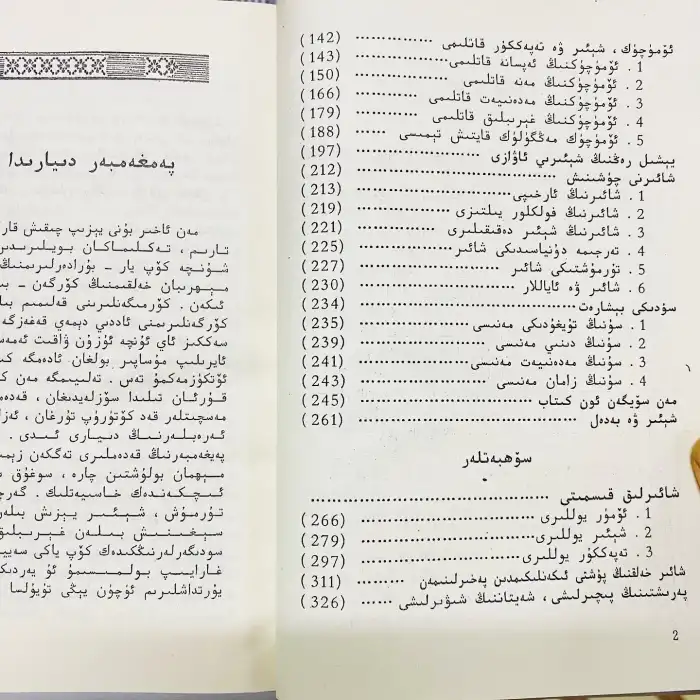 ئۆمۈچۈك، شېئىر ۋە تەپەككۇر قاتلىمى ·············· (142)
1 . ئۆمۈچۈكنىڭ ئەپسانە قاتلىمى ·············· (143)
2 . ئۆمۈچۈكنىڭ مەنە قاتلىمى ·············· (150)
3 . ئۆمۈچۈكنىڭ مەدەنىيەت قاتلىمى ·············· (166)
4 . ئۆمۈچۈكنىڭ غېرىبلىق قاتلىمى ·············· (179)
5 . ئۆمۈچۈك مەڭگۈلۈك قايتىش تېمىسى ······ (188)
يېشىل رەڭنىڭ شېئىرىي ئاۋازى ·············· (197)
شائىرنى چۈشىنىش ·············· (212)
1 . شائىرنىڭ ئارخىپى ·············· (213)
2 . شائىرنىڭ فولكلور يىلتىزى ·············· (219)
3 . شائىرنىڭ شېئىر دەقىقىلىرى ·············· (221)
4 . تەرجىمە دۇنياسىدىكى شائىر ·············· (225)
5 . تۇرمۇشتىكى شائىر ·············· (227)
6 . شائىر ۋە ئاياللار ·············· (230)
سۇدىكى بېشارەت ·············· (234)
1 . سۇنىڭ تۇيغۇدىكى مەنىسى ·············· (235)
2 . سۇنىڭ دىنىي مەنىسى ·············· (239)
3 . سۇنىڭ مەدەنىيەت مەنىسى ·············· (241)
4 . سۇنىڭ زامان مەنىسى ·············· (243)
مەن سۆيگەن ئون كىتاب ·············· (245)
شېئىر ۋە بەدەل ·············· (261)
سۆھبەتلەر
شائىرلىق قىسمىتى ··············
1 . ئۆمۈر يوللىرى ·············· (266)
2 . شېئىر يوللىرى ·············· (279)
3 . تەپەككۇر يوللىرى ·············· (297)
شائىر خەلقنىڭ پۇشتى ئىكەنلىكىمدىن پەخىرلىنىمەن ······ (311)
پەرىشتىنىڭ پىچىرلىشى، شەيتاننىڭ شىۋىرلىشى ······ (326)
2
پەمغەمبەر دىيارىدا
مەن ئاخىر بۇنى يېزىپ چىقىش قار
تارىم، تەكلىماكان بويلىرىدىر
شۇنچە كۆپ يار - بۇرادەرلىرىمنىڭ
مېھرىبان خەلقىمنىڭ كۆرگەن - بى
ئىكەن . كۆرمىگەنلىرىنى قەلىمىم بىل
كۆرگەنلىرىمنى ئاددىي دېمەي قەغەزگە
سەككىز ئاي ئۇنچە ئۇزۇن ۋاقىت ئەمەس
ئايرىلىپ مۇساپىر بولغان ئادەمگە كى
ئۆتكۈزمەكمۇ تەس . تەلىيىمگە مەن ك
قۇرئان تىلىدا سۆزلەيدىغان، قەدەم
مەسچىتلەر قەد كۆتۈرۈپ تۇرغان، ئەزا
ئەرەبلەرنىڭ دىيارى ئىدى .
پەيغەمبەرنىڭ قەدەملىرى تەگكەن زېم
مېھمان بولۇشتىن چارە، سوغۇق س
ئىچكەندەك خاسىيەتلىك . گەرچ
تۇرمۇش، شېئىر يېزىش بىلەر
سېغىنىش بىلەن غېرىبلىق
سودىگەرلەرنىڭكىدەك كۆپ ياكى سەييى
غارايىپ بولمىسىمۇ ئۇ يەردىك
يۇرتداشلىرىم ئۈچۈن يېڭى تۇيۇلسا